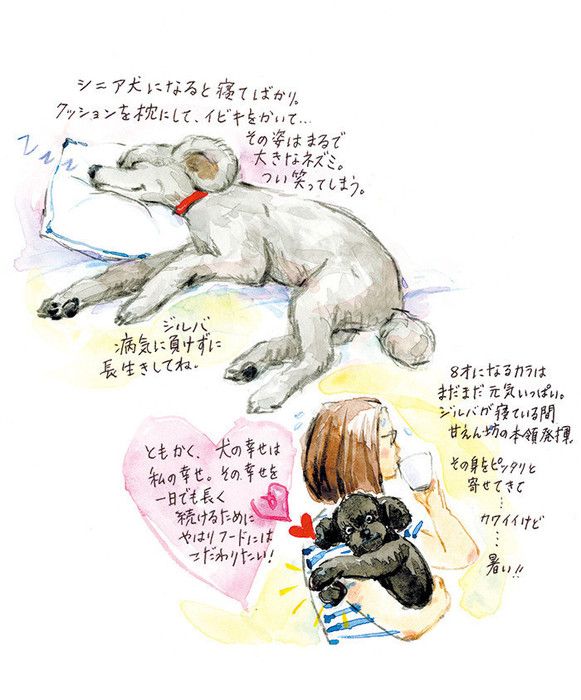 シニア犬になると寝てばかり。
クッションを枕にして、イビキをかいて…
その姿はまるで
大きなネズミ。
つい笑ってしまう。
ジルバ
病気に負けずに
長生きしてね。
8才になるカラは
まだまだ元気いっぱい。
ジルバが寝ている間
甘えん坊の本領発揮。
その身をピッタリと
寄せてきて
…
カワイイけど
…
暑い!!
ともかく、犬の幸せは
私の幸せ。その幸せを
一日でも長く
続けるために
やはりフードには
こだわりたい!